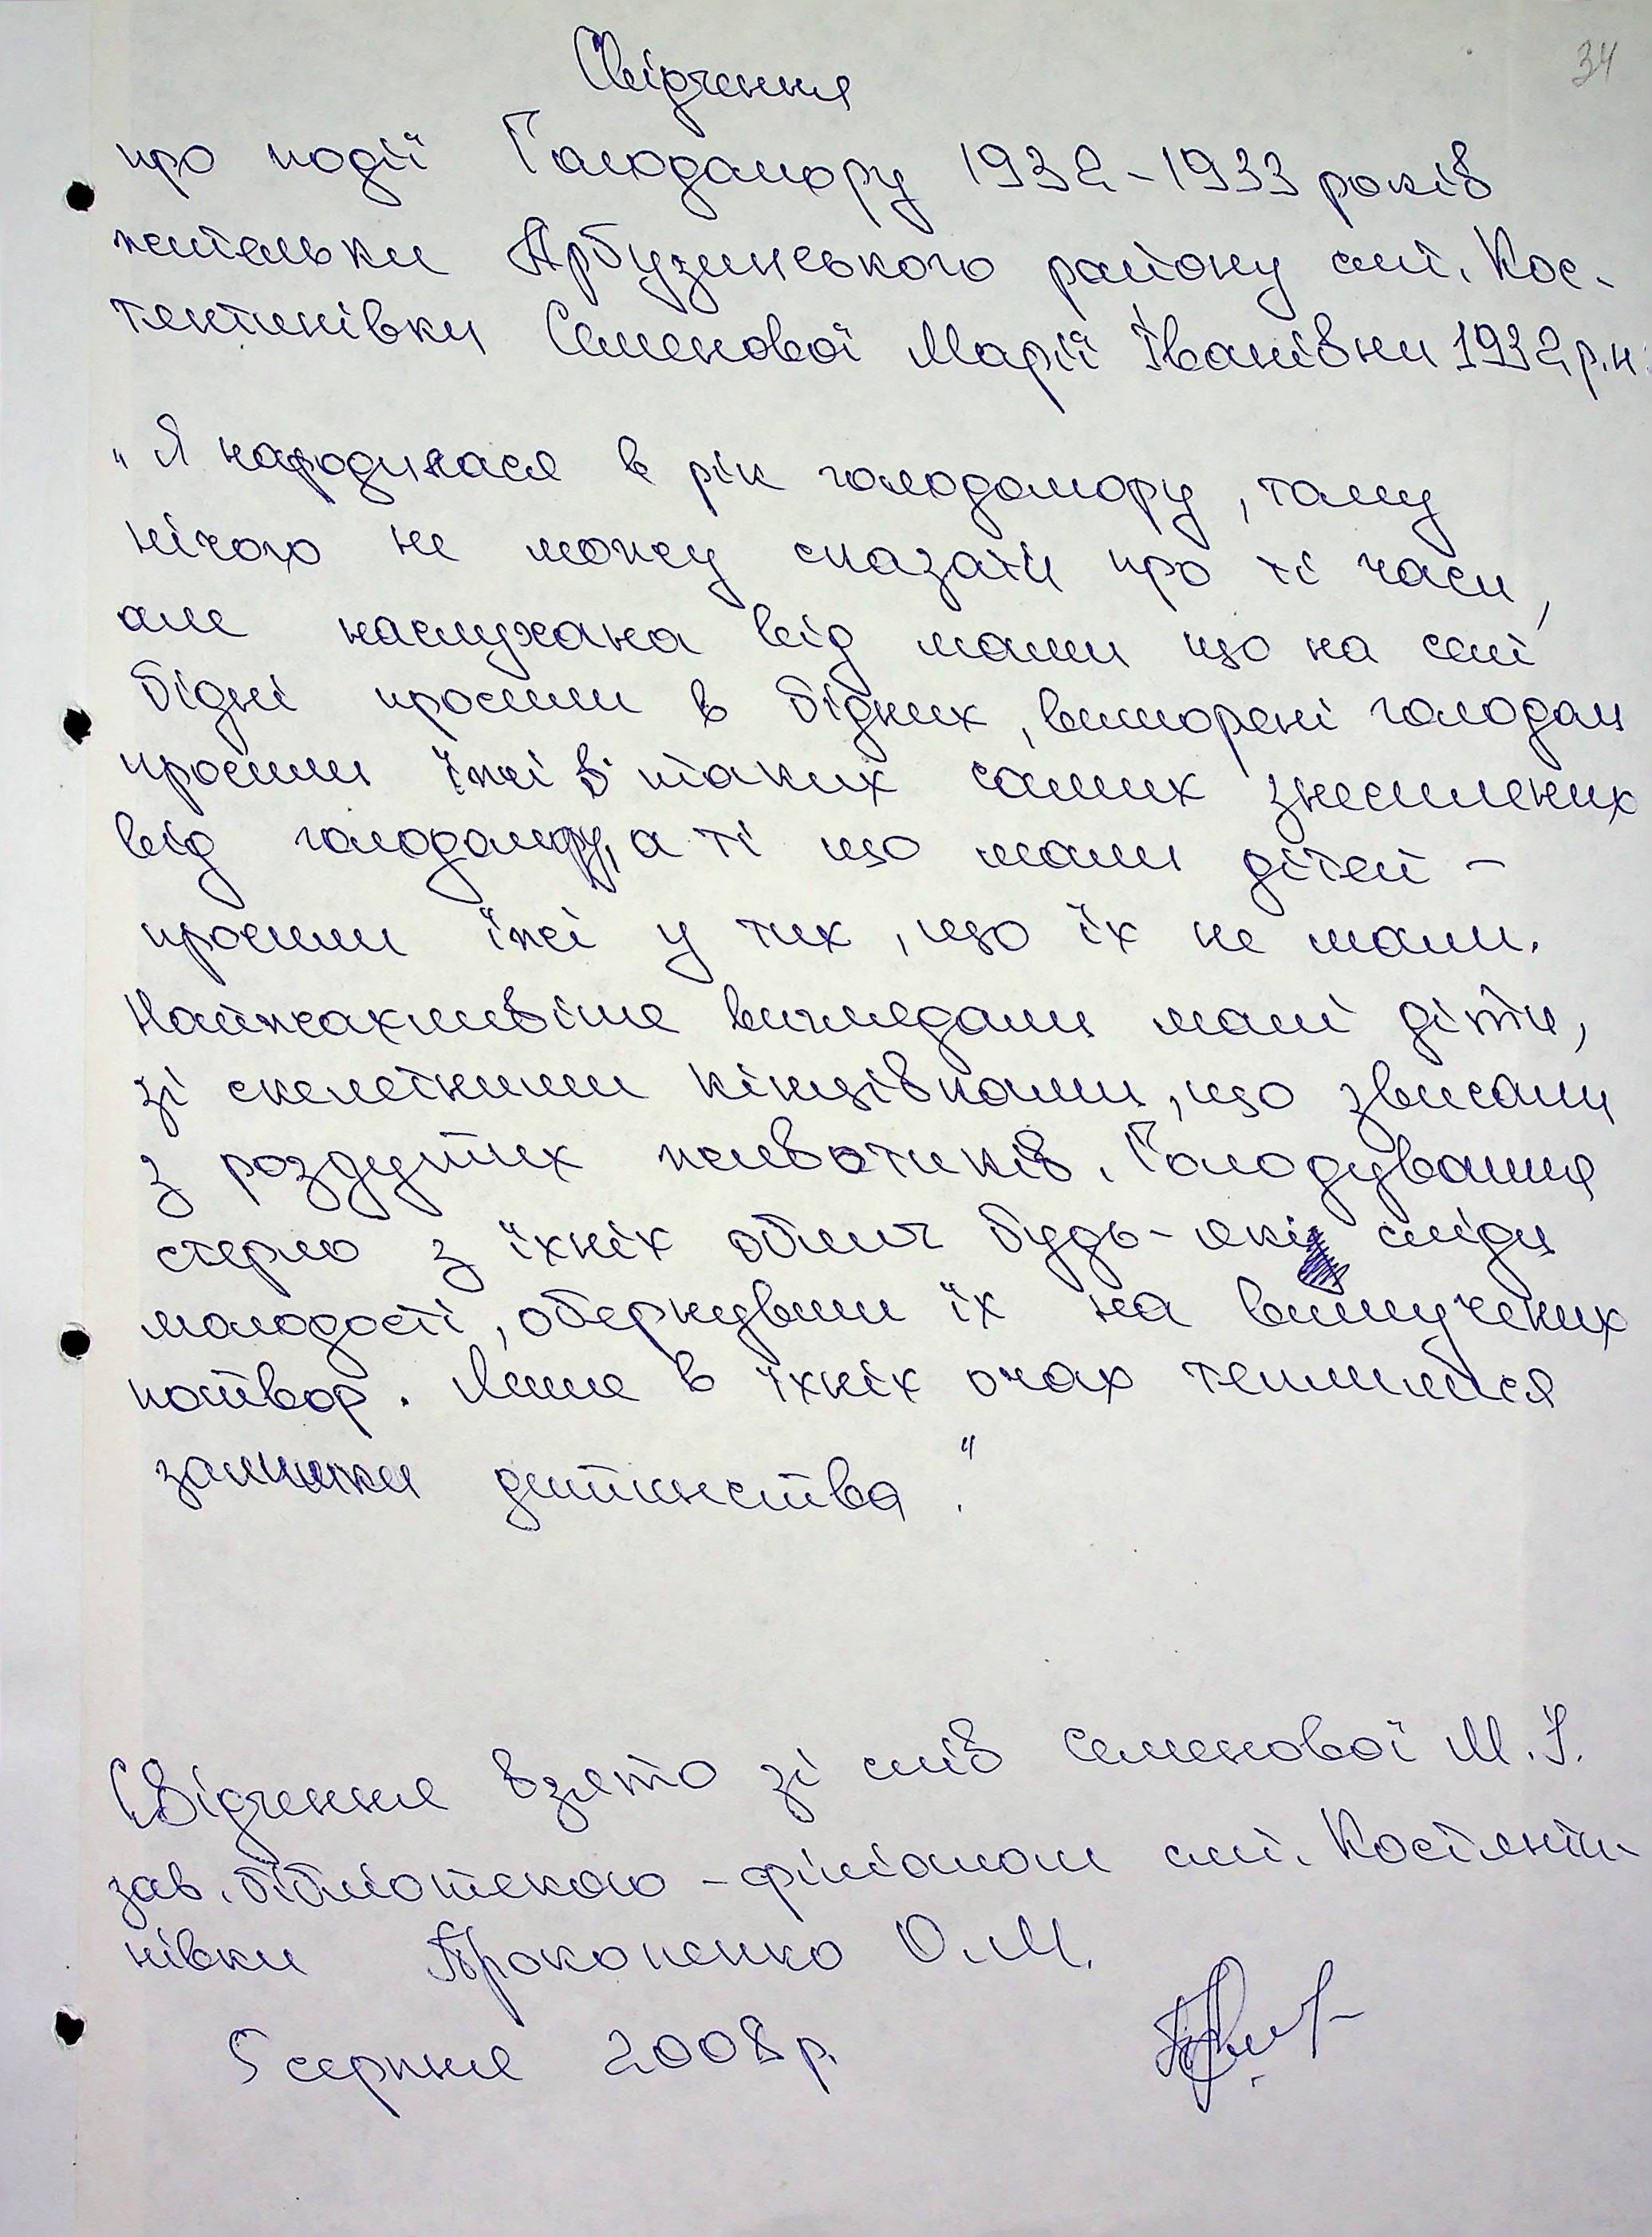 34
Свідчення
про події Голодомору 1932-1933 років
жительки Арбузинського району смт. Кос-
тянтинівки Семенової Марії Іванівни 1932 р.н.
„Я народилася в рік голодомору, тому
нічого не можу сказати про ті часи,
але наслухана від мами що на селі
бідні просили в бідних, виморені голодом
просили їжі в таких самих знесилених
від голодомору, а ті що мали дітей –
просили їжі у тих, що їх не мали.
Найжахливіше виглядали малі діти,
зі скелетними кінцівками, що звисали
з роздутих животиків. Голодування
стерло з їхніх облич будь-які сліди
молодості, обернувши їх на вимучених
потвор. Лише в їхніх очах теплилися
залишки дитинства."
Свідчення взято зі слів Семенової М.І.
зав. бібліотекою-філіалом смт. Костянти-
нівки Прокопенко О.М.
5 серпня 2008 р.